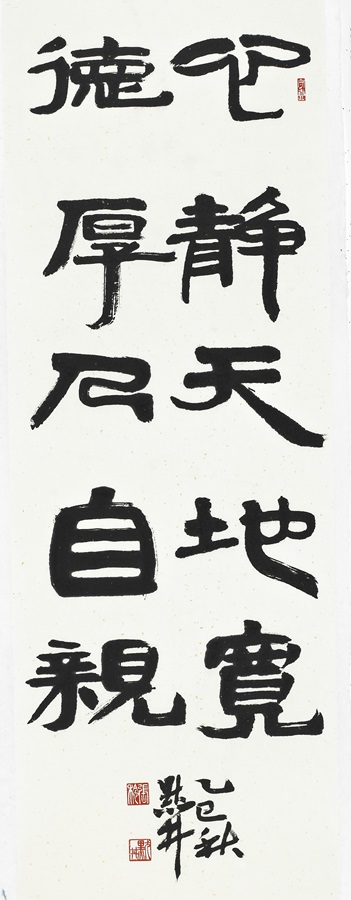 心静天地寬
德厚乃自親
乙巳秋
井